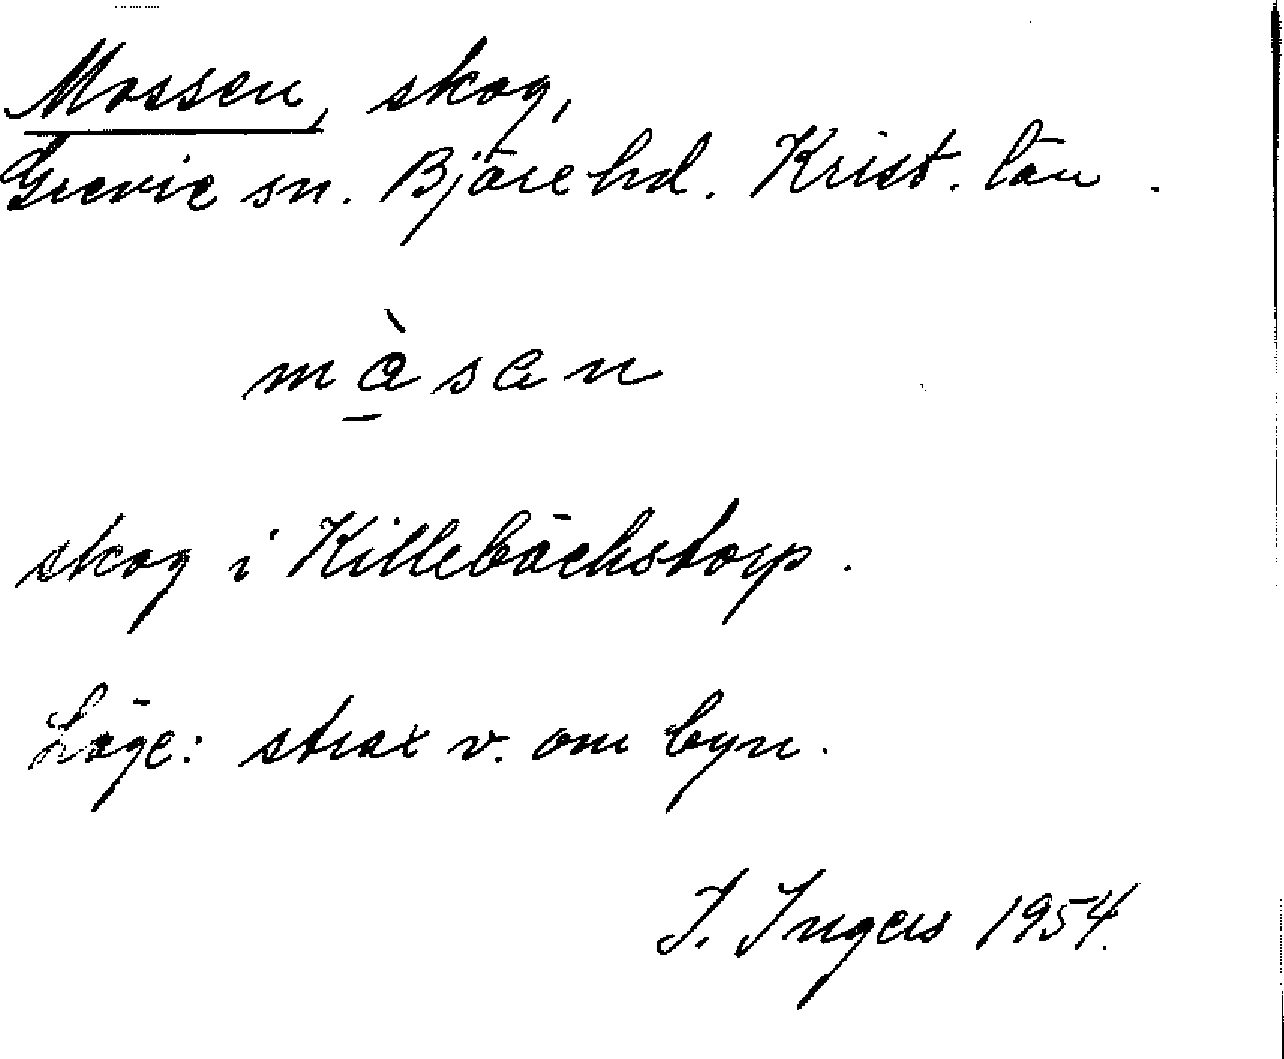 Mossen, skog,
Grevie sn. Bjäre hd. Krist. län.
måsan
skog i Killebäckstorp.
Läge: strax v. om byn.
I. Ingers 1954.